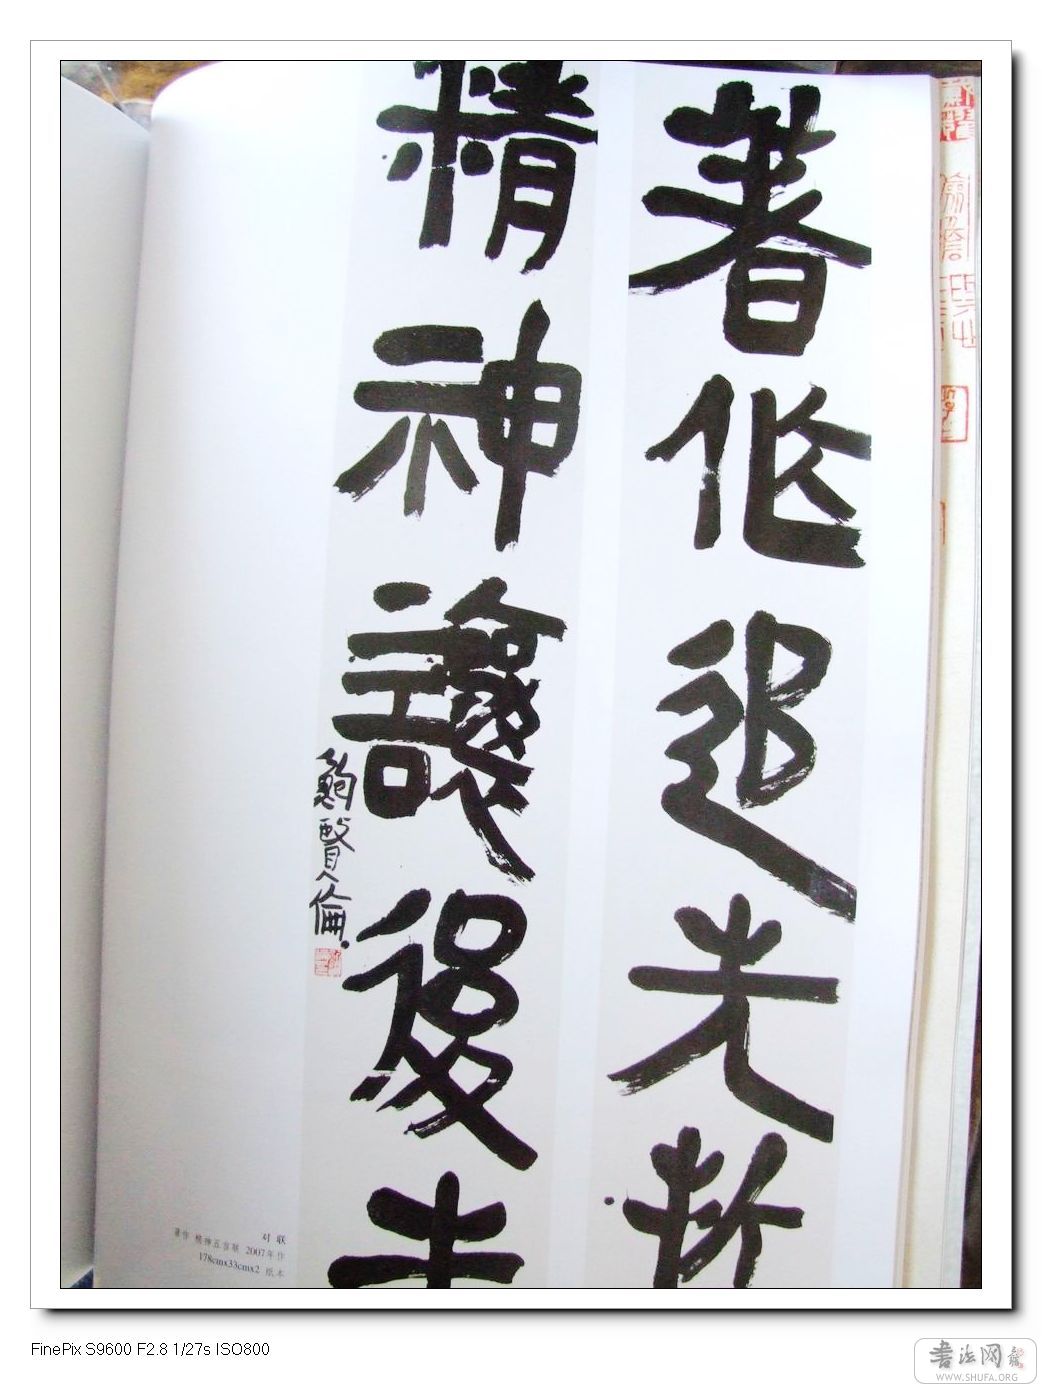 著作追先哲
精神讓後
鮑賢倫
对联
著作 精神五言联 2007年作
178cm×33cm×2 纸本
FinePix S9600 F2.8 1/27s ISO800
书法网
WWW.SHUFA.ORG